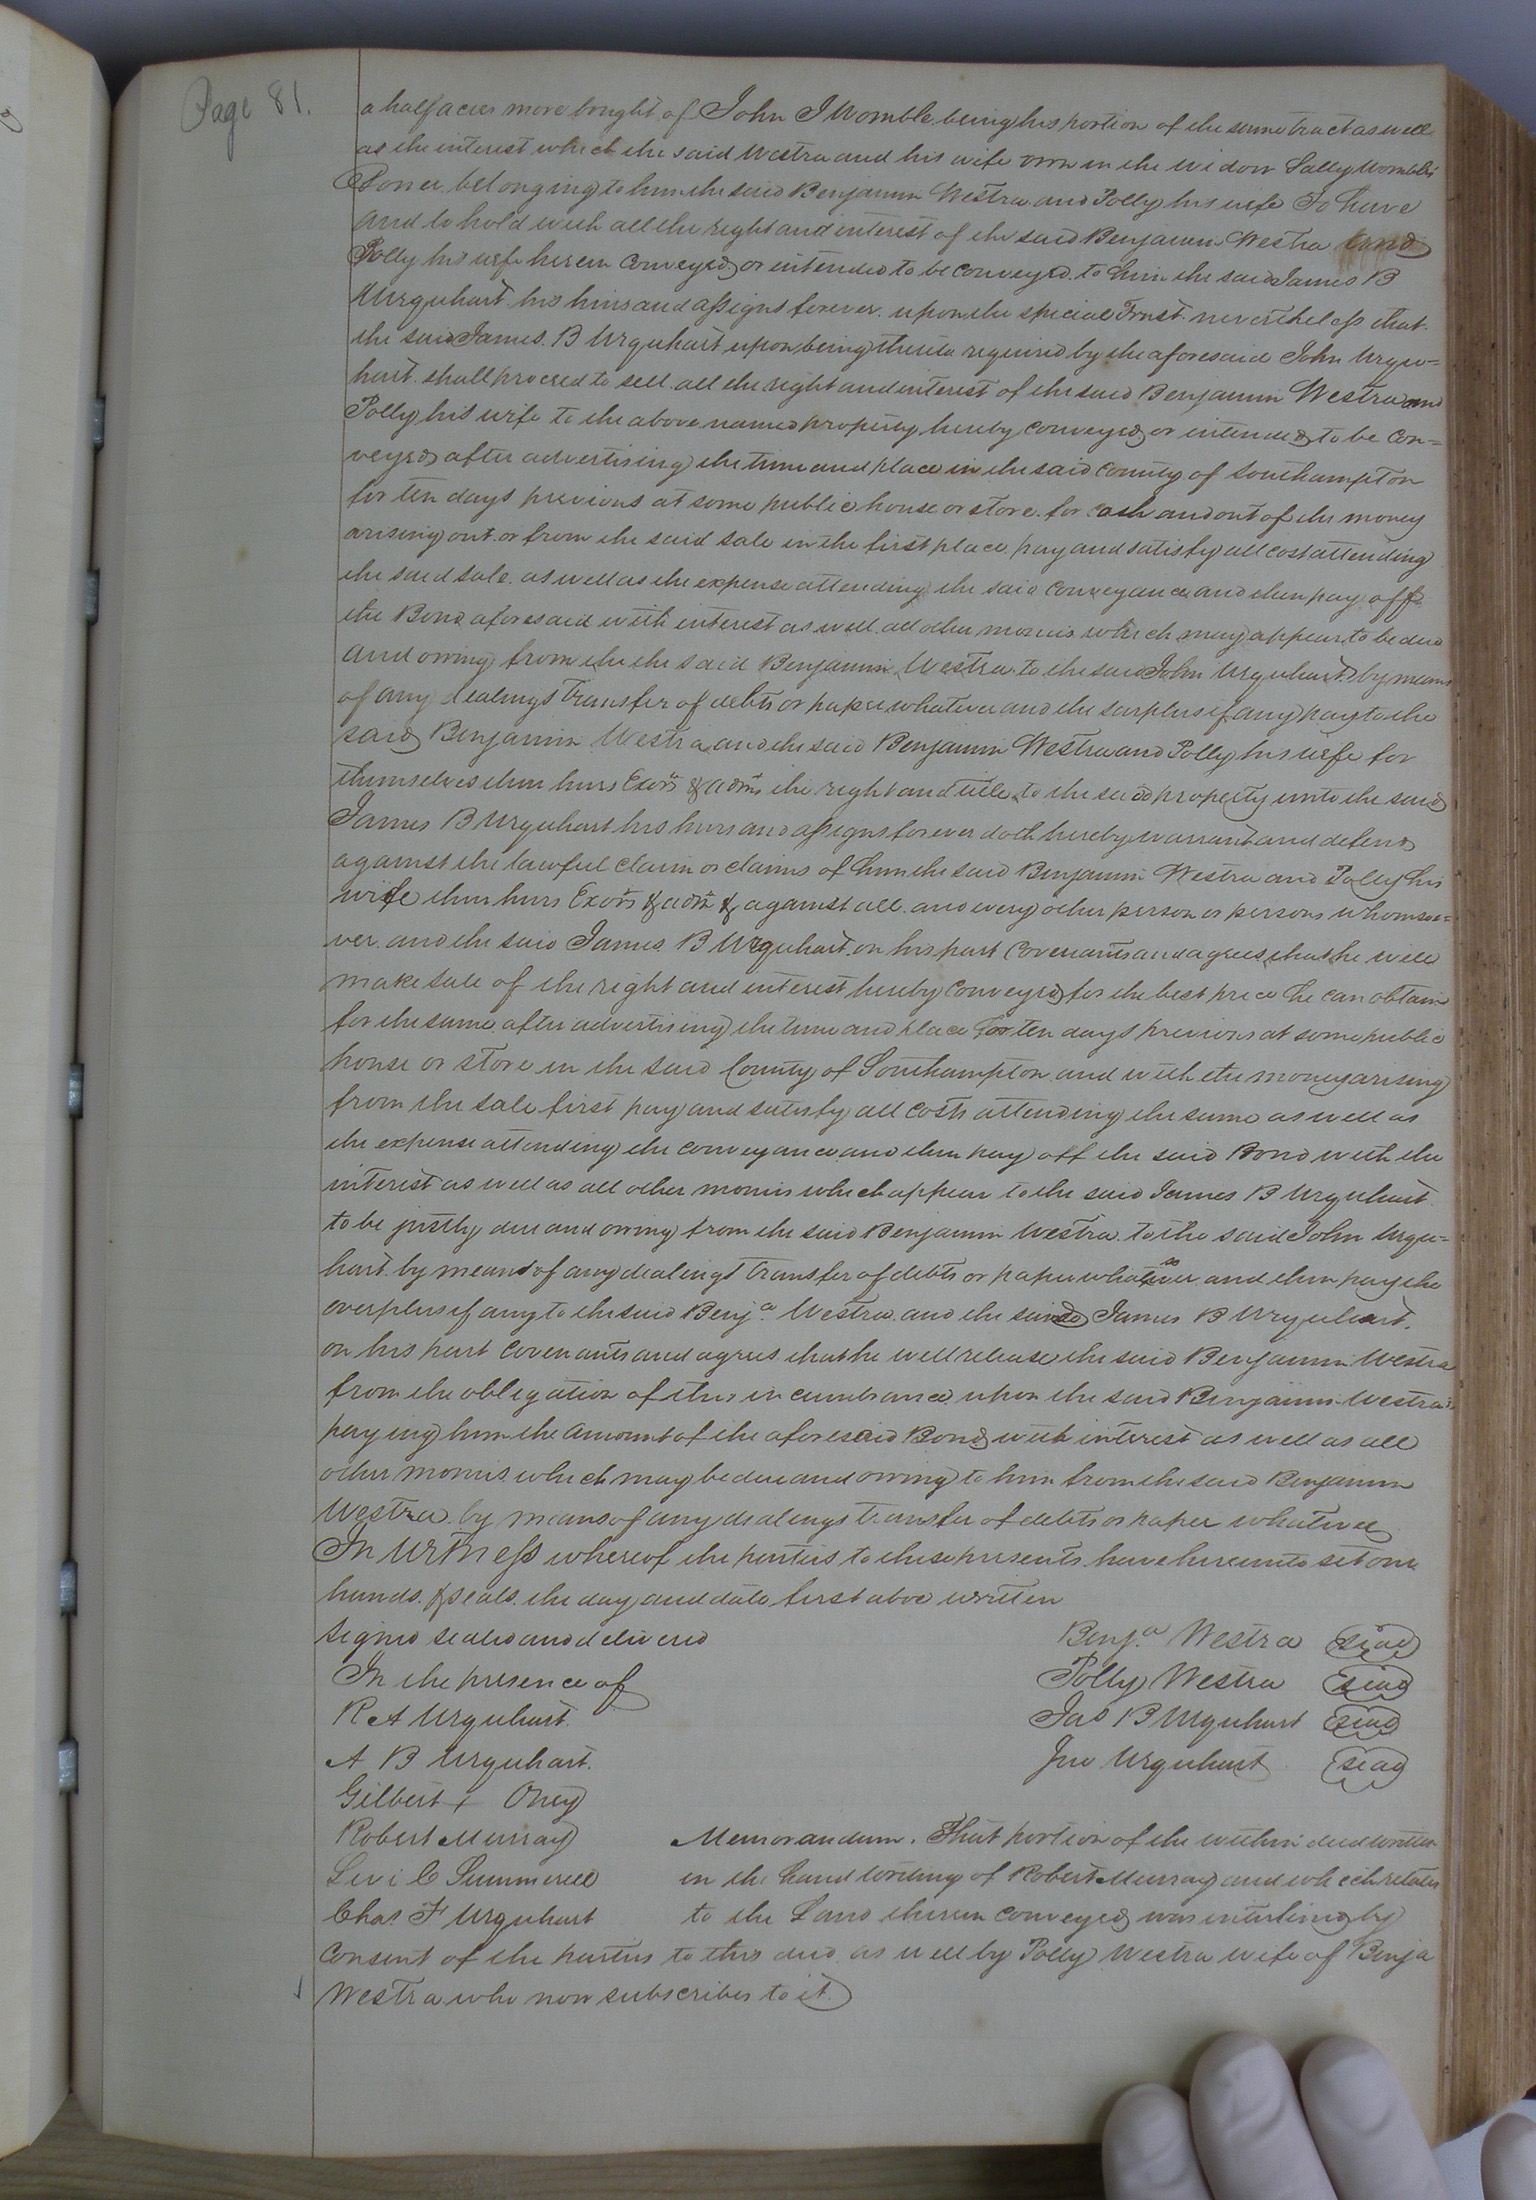 Page 81.
a half acres more bought of John J Womble being his portion of the same tract as well
as the interest which the said Westra and his wife own in the widow Sally Womble's
Dower belonging to him the said Benjamin Westra and Polly his wife To have
and to hold with all the right and interest of the said Benjamin Westra and
Polly his wife herein conveyed or intended to be conveyed to him the said James B
Urquhart his heirs and assigns forever upon the special Trust nevertheless that
the said James B Urquhart upon being thereto required by the aforesaid John Urqu=
hart shall proceed to sell all the right and interest of the said Benjamin Westra and
Polly his wife to the above named property hereby conveyed or intended to be con=
veyed after advertising the time and place in the said county of Southampton
for ten days previous at some public house or store for cash and out of the money
arising out or from the said sale in the first place pay and satisfy all cost attending
the said sale as well as the expense attending the said conveyance and then pay off
the Bond aforesaid with interest as well all other monies which may appear to be due
and owing from the the said Benjamin Westra to the said John Urquhart by means
of any dealings transfer of debts or paper whatever and the surplus if any pay to the
said Benjamin Westra and the said Benjamin Westra and Polly his wife for
themselves their heirs Exors & adms the right and title to the said property unto the said
James B Urquhart his heirs and assigns forever doth hereby warrant and defend
against the lawful claim or claims of him the said Benjamin Westra and Polly his
wife their heirs Exors & adms & against all and every other person or persons whomsoe=
ver and the said James B Urquhart on his part covenants and agrees that he will
make sale of the right and interest hereby conveyed for the best price he can obtain
for the same after advertising the time and place for ten days previous at some public
house or store in the said County of Southampton and with the money arising
from the sale first pay and satisfy all costs attending the same as well as
the expense attending the conveyance and then pay off the said Bond with the
interest as well as all other monies which appear to the said James B Urquhart
to be justly due and owing from the said Benjamin Westra to the said John Urqu=
hart by means of any dealings transfer of debts or paper whatsoever and then pay the
overplus if any to the said Benj.a Westra and the said James B Urquhart
on his part covenants and agrees that he will release the said Benjamin Westra
from the obligation of this incumbrance upon the said Benjamin Westra's
paying him the amount of the aforesaid Bond with interest as well as all
other monies which may be due and owing to him from the said Benjamin
Westra by means of any dealings transfer of debts or paper whatever
In Witness whereof the parties to these presents have hereunto set our
hands & seals the day and date first above written
signed sealed and delivered Benj.a Westra seal
In the presence of Polly Westra seal
R A Urquhart Jas B Urquhart seal
A B Urquhart. Jno Urquhart seal
Gilbert + Oney
Robert Murray Memorandum. That portion of the within deed written
Levi C Summerell in the hand writing of Robert Murray and which relates
Chas F Urquhart to the Land therein conveyed was interlined by
consent of the parties to this deed as well by Polly Westra wife of Benja
Westra who now subscribes to it